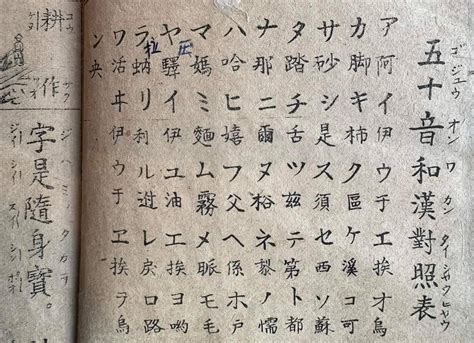 五十音和漢對照表
ゴ オン ワ カン タイ シヤウ ヒヤウ
ア阿 イ伊 ウ于 エ挨 オ烏
カ脚 キ柿 ク區 ケ溪 コ可
サ砂 シ是 ス須 セ西 ソ蘇
タ踏 チ舌 ツ茲 テ第 ト都
ナ那 ニ爾 ヌ ネ ノ懦
ハ哈 ヒ嬉 フ父 ヘ係 ホ戸
マ媽 ミ麵 ム霧 メ脈 モ毛
ヤ驛 イ伊 ユ油 エ挨 ヨ喲
ラ蚋 リ利 ル レ戾 ロ路
拉
ワ活 ヰ伊 ウ于 ヱ挨 ヲ烏
ン央
耕作
コウ サク
字是隨身寶。
ジ ハ ミ タカラ
ジイ シイ スイ シン ポオ